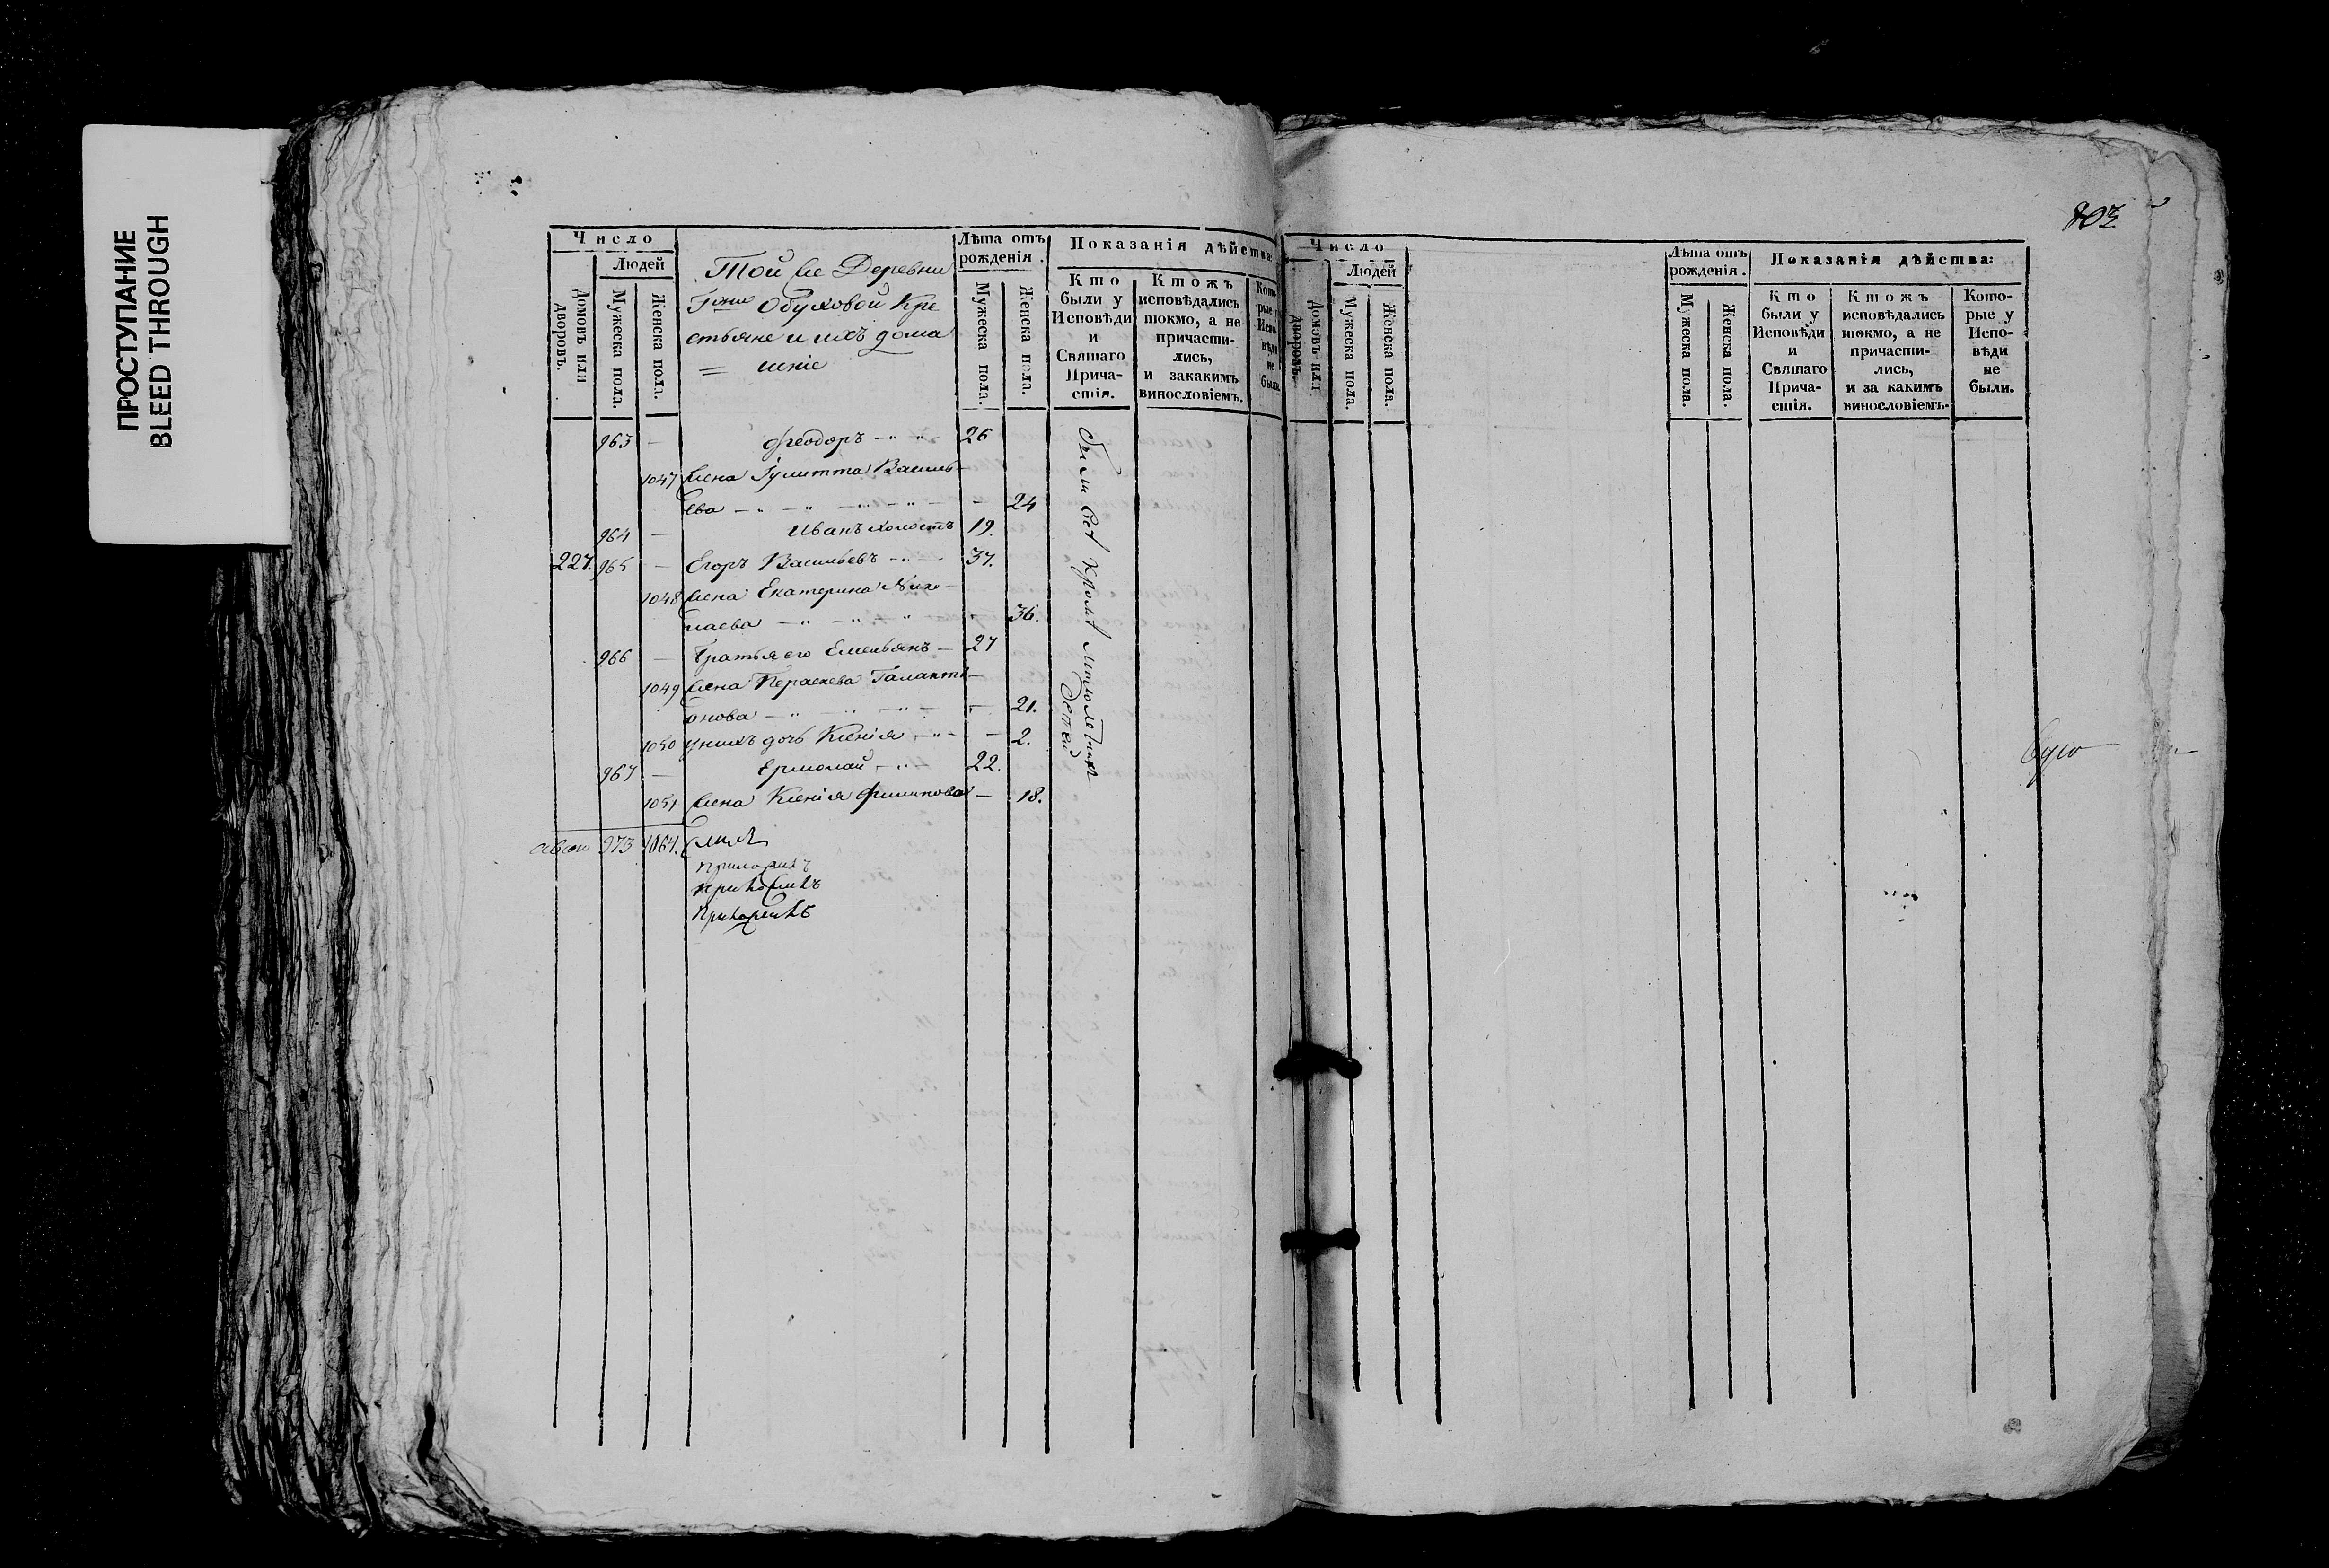 ПРОСТУПАНИЕ
BLEED THROUGH
Число
Людей
Домовъ или дворовъ.
Мужеска пола.
Женска пола.
Той же Деревни
Обуховой Кре
стьяне и ихъ дома
= шніе
Лѣта отъ рожденія.
Мужеска пола.
Женска пола.
Показанія дѣйства
Кто были у Исповѣди и Святаго Прича-стія.
Ктожъ исповѣдались токмо, а не причасти-лись, и закакимъ винословіемъ.
Кото-рые у Испо-вѣди не были.
963 — Ѳеодоръ 26
1047 жена Іулитта Василь-
ева — 24
964 — Иванъ холостъ 19.
227. 965 — Егоръ Васильевъ 37.
1048 жена Екатерина Нико-
лаева 36.
966 — Братья его Емельянъ — 27
1049 жена Параскева Галакті-
онова — 21.
1050 у нихъ дочь Ксенія — 2.
967 — Ермолай 22.
1051 жена Ксенія Филипова — 18.
были всѣ кромѣ малолѣтнихъ
детей
973 1064.
Число
Людей
Домовъ или дворовъ.
Мужеска пола.
Женска пола.
Лѣта отъ рожденія.
Мужеска пола.
Женска пола.
Показанія дѣйства:
Кто были у Исповѣди и Святаго Прича-стія.
Ктожъ исповѣдались токмо, а не причасти-лись, и за какимъ винословіемъ.
Кото-рые у Испо-вѣди не были.